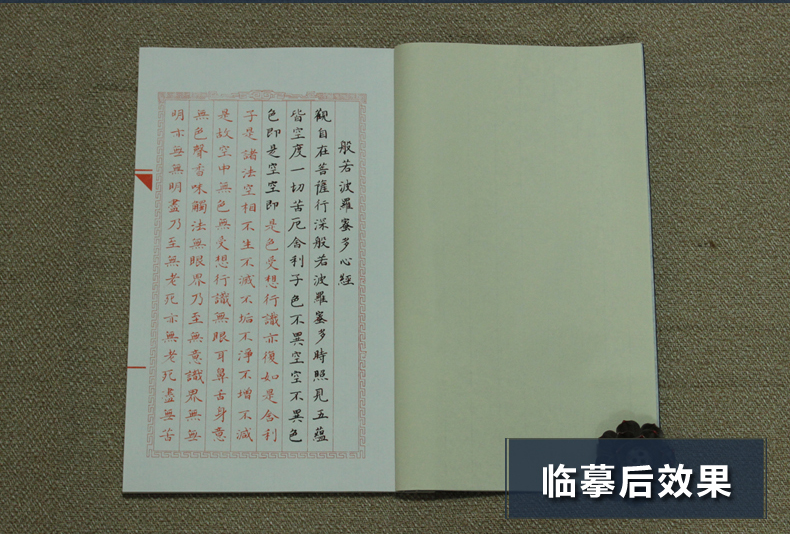 般若波羅蜜多心經
觀自在菩薩行深般若波羅蜜多時照見五蘊
皆空度一切苦厄舍利子色不異空空不異色
色即是空空即是色受想行識亦復如是舍利
子是諸法空相不生不滅不垢不淨不增不減
是故空中無色無受想行識無眼耳鼻舌身意
無色聲香味觸法無眼界乃至無意識界無無
明亦無無明盡乃至無老死亦無老死盡無苦
临摹后效果